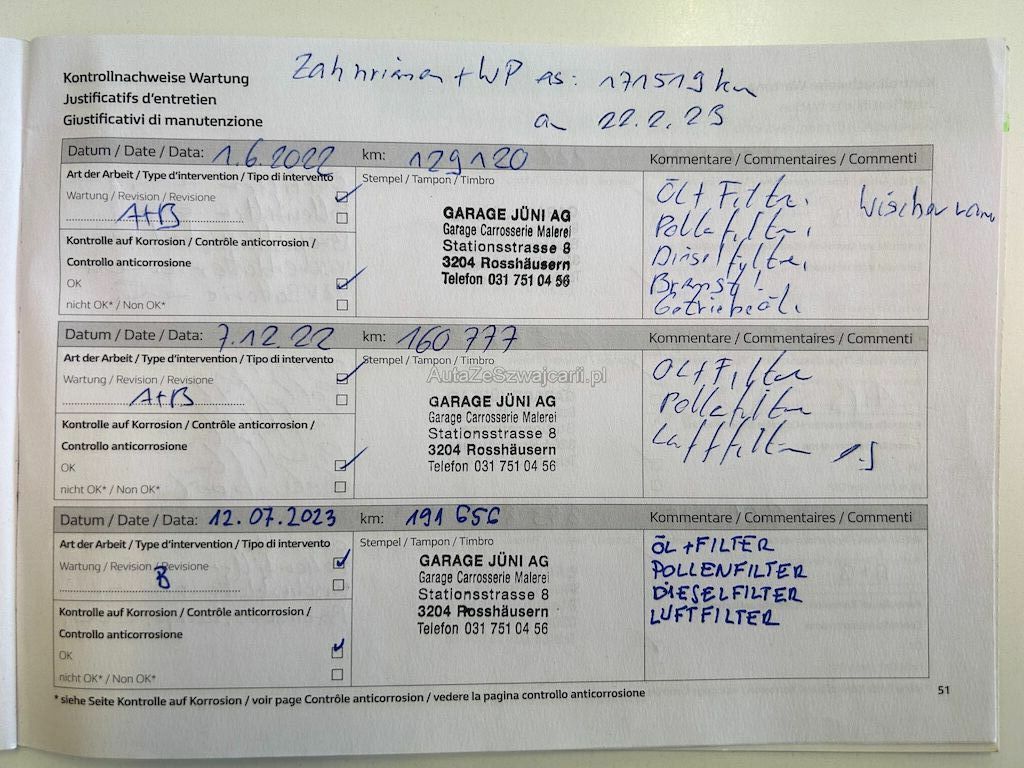 Zahnriemen + WP as: 171519 km
a 22.2.23
Kontrollnachweise Wartung
Justificatifs d'entretien
Giustificativi di manutenzione
Datum / Date / Data: 1.6.2022 km: 129120 Kommentare / Commentaires / Commenti
Art der Arbeit / Type d'intervention / Tipo di intervento
Wartung / Revision / Revisione
A+B
Kontrolle auf Korrosion / Contrôle anticorrosion /
Controllo anticorrosione
OK
nicht OK* / Non OK*
Stempel / Tampon / Timbro
GARAGE JÜNI AG
Garage Carrosserie Malerei
Stationsstrasse 8
3204 Rosshäusern
Telefon 031 751 04 56
Öl + Filter,
Pollefilter,
Dieselfilter,
Bremsfl.
Getriebeöl.
Datum / Date / Data: 7.12.22 km: 160 777 Kommentare / Commentaires / Commenti
Art der Arbeit / Type d'intervention / Tipo di intervento
Wartung / Revision / Revisione
A+B
Kontrolle auf Korrosion / Contrôle anticorrosion /
Controllo anticorrosione
OK
nicht OK* / Non OK*
Stempel / Tampon / Timbro
AutaZeSzwajcarii.pl
GARAGE JÜNI AG
Garage Carrosserie Malerei
Stationsstrasse 8
3204 Rosshäusern
Telefon 031 751 04 56
Öl + Filter
Pollefilter
Luftfilter
Datum / Date / Data: 12.07.2023 km: 191 656 Kommentare / Commentaires / Commenti
Art der Arbeit / Type d'intervention / Tipo di intervento
Wartung / Revision / Revisione
B
Kontrolle auf Korrosion / Contrôle anticorrosion /
Controllo anticorrosione
OK
nicht OK* / Non OK*
Stempel / Tampon / Timbro
GARAGE JÜNI AG
Garage Carrosserie Malerei
Stationsstrasse 8
3204 Rosshäusern
Telefon 031 751 04 56
ÖL + FILTER
POLLENFILTER
DIESELFILTER
LUFTFILTER
* siehe Seite Kontrolle auf Korrosion / voir page Contrôle anticorrosion / vedere la pagina controllo anticorrosione
51